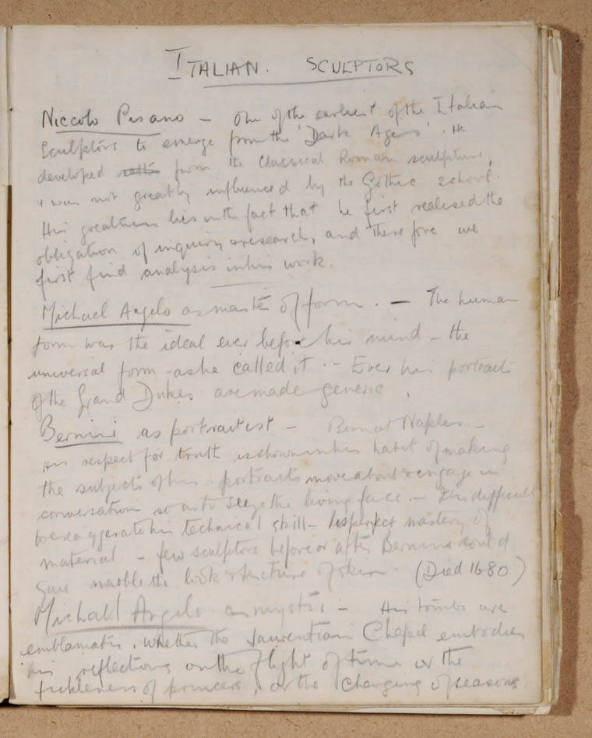 ITALIAN. SCULPTORS
Niccolo Pisano – One of the earliest of the Italian
Sculptors to emerge from the 'Dark Ages'. He
developed from the classical Roman sculpture,
& was not greatly influenced by the Gothic school.
His greatness lies in the fact that he first realised the
obligation of inquiry & research, and therefore we
first find analysis in his work.
Michael Angelo as master of form. – The human
form was the ideal ever before his mind – the
universal form – as he called it – Even his portraits
of the Grand Dukes are made generic.
Bernini as portraitist – Born at Naples –
His respect for truth is shown in his habit of making
the subjects of his portraits move about & engage in
conversation so as to seize the living face – It is difficult
to exaggerate his technical skill – his perfect mastery of
material – few sculptors before or after Bernini could
give marble the look & texture of skin. (Died 1680)
Michael Angelo as mystic – His tombs are
emblematic, whether the Laurentian Chapel embodies
his reflections on the flight of time or the
fickleness of princes, or the changing of seasons